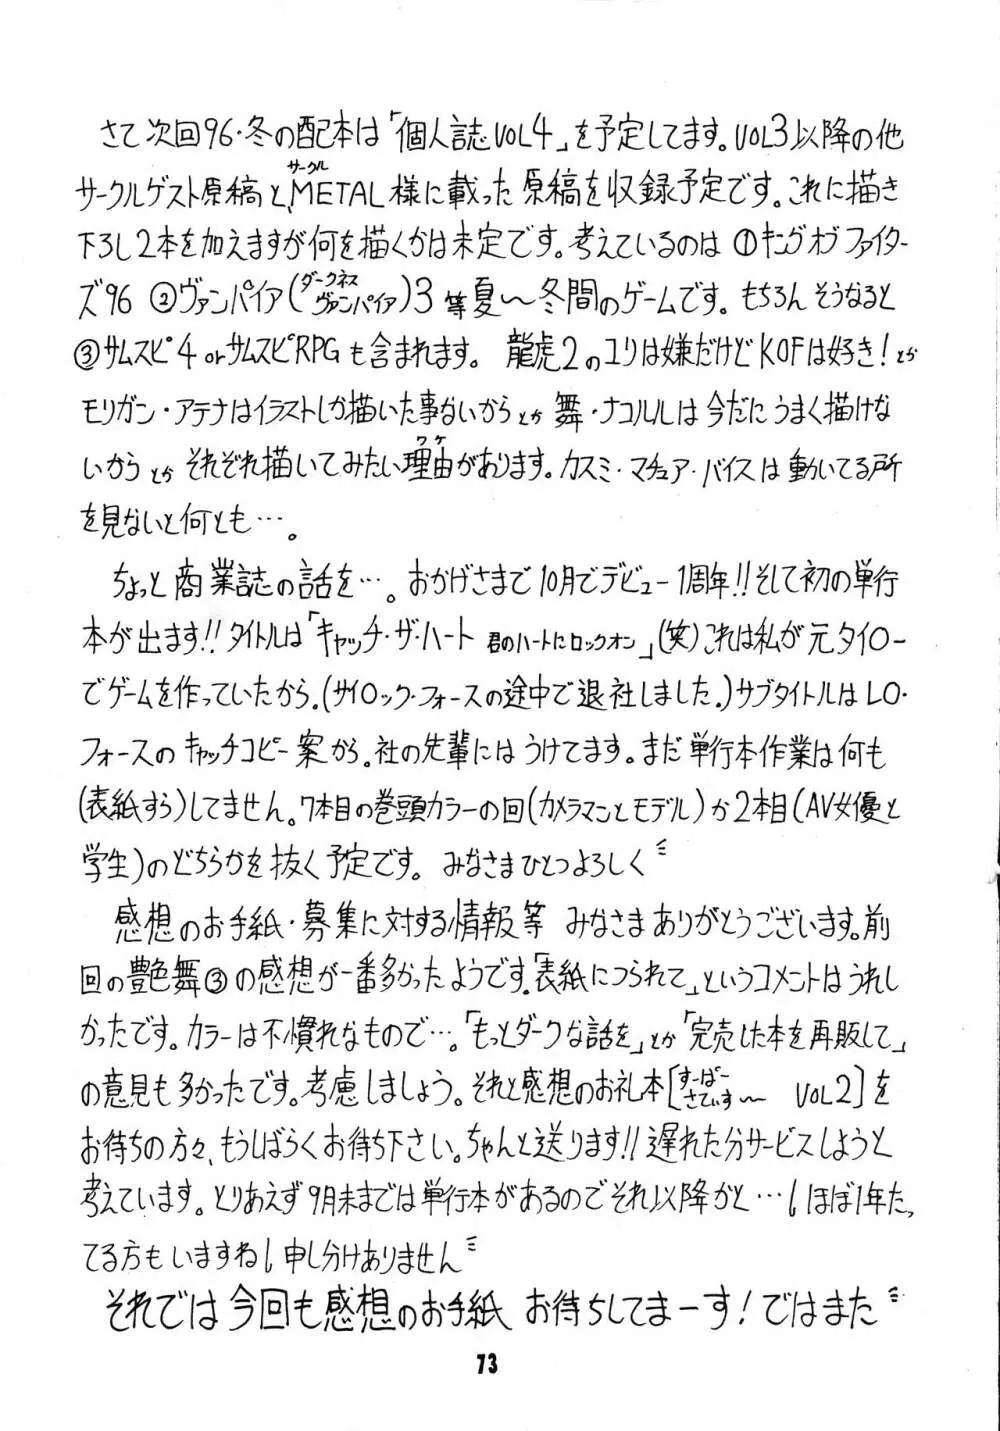 さて次回96・冬の配本は「個人誌VOL4」を予定してます。VOL3以降の他
サークルゲスト原稿と、METAL様に載った原稿を収録予定です。これに描き
サークル
下ろし2本を加えますが何を描くかは未定です。考えているのは①キングオブファイター
ズ96 ②ヴァンパイア(ダークネスヴァンパイア)3等夏〜冬間のゲームです。もちろんそうなると
③サムスピ4orサムスピRPGも含まれます。 龍虎2のユリは嫌だけどKOFは好き!とか
モリガン・アテナはイラストしか描いた事ないからとか舞・ナコルルは今だにうまく描けな
いからとかそれぞれ描いてみたい理由があります。カスミ・マチュア・バイスは動いてる所
ワケ
を見ないと何とも…。
ちょっと商業誌の話を…。おかげさまで10月でデビュー1周年!!そして初の単行
本が出ます!!タイトルは「キャッチ・ザ・ハート 君のハートにロックオン」(笑)これは私が元タイトー
でゲームを作っていたから。(サイロック・フォースの途中で退社しました。)サブタイトルはLO・
フォースのキャッチコピー案から。社の先輩にはうけてます。まだ単行本作業は何も
(表紙すら)してません。7本目の巻頭カラーの回(カメラマンとモデル)か2本目(AV女優と
学生)のどちらかを抜く予定です。 みなさまひとつよろしく
感想のお手紙・募集に対する情報等 みなさまありがとうございます。前
回の艶色舞③の感想が一番多かったようです。「表紙につられて」というコメントはうれし
かったです。カラーは不慣れなもので…。「もっとダークな話を」とか「完売した本を再販して」
の意見も多かったです。考慮しましょう。それと感想のお礼本[すーぱーさてぃすー〜 VOL2]を
お待ちの方々、もうしばらくお待ち下さい。ちゃんと送ります!!遅れた分サービスしようと
考えています。とりあえず9月末までは単行本があるのでそれ以降かと…(ほぼ1年たっ
てる方もいますね)申し分けありません
それでは今回も感想のお手紙 お待ちしてまーす!ではまた
73